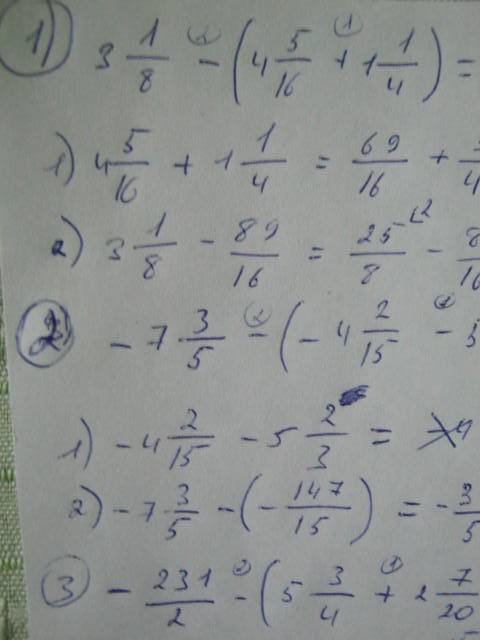 1) 3 1/8 - (4 5/16 + 1 1/4) =
1) 4 5/16 + 1 1/4 = 69/16 +
2) 3 1/8 - 89/16 = 25/8 -
2) - 7 3/5 - (- 4 2/15 - 5
1) - 4 2/15 - 5 2/3 =
2) - 7 3/5 - (- 147/15) = -
3 - 231/2 - (5 3/4 + 2 7/20